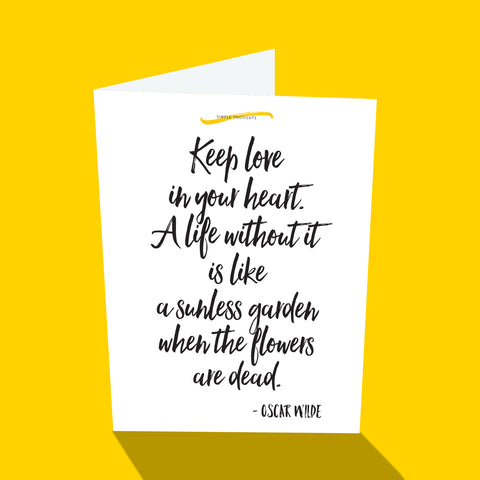 SIMPLE THOUGHTS
Keep love
in your heart.
A life without it
is like
a sunless garden
when the flowers
are dead.
- OSCAR WILDE